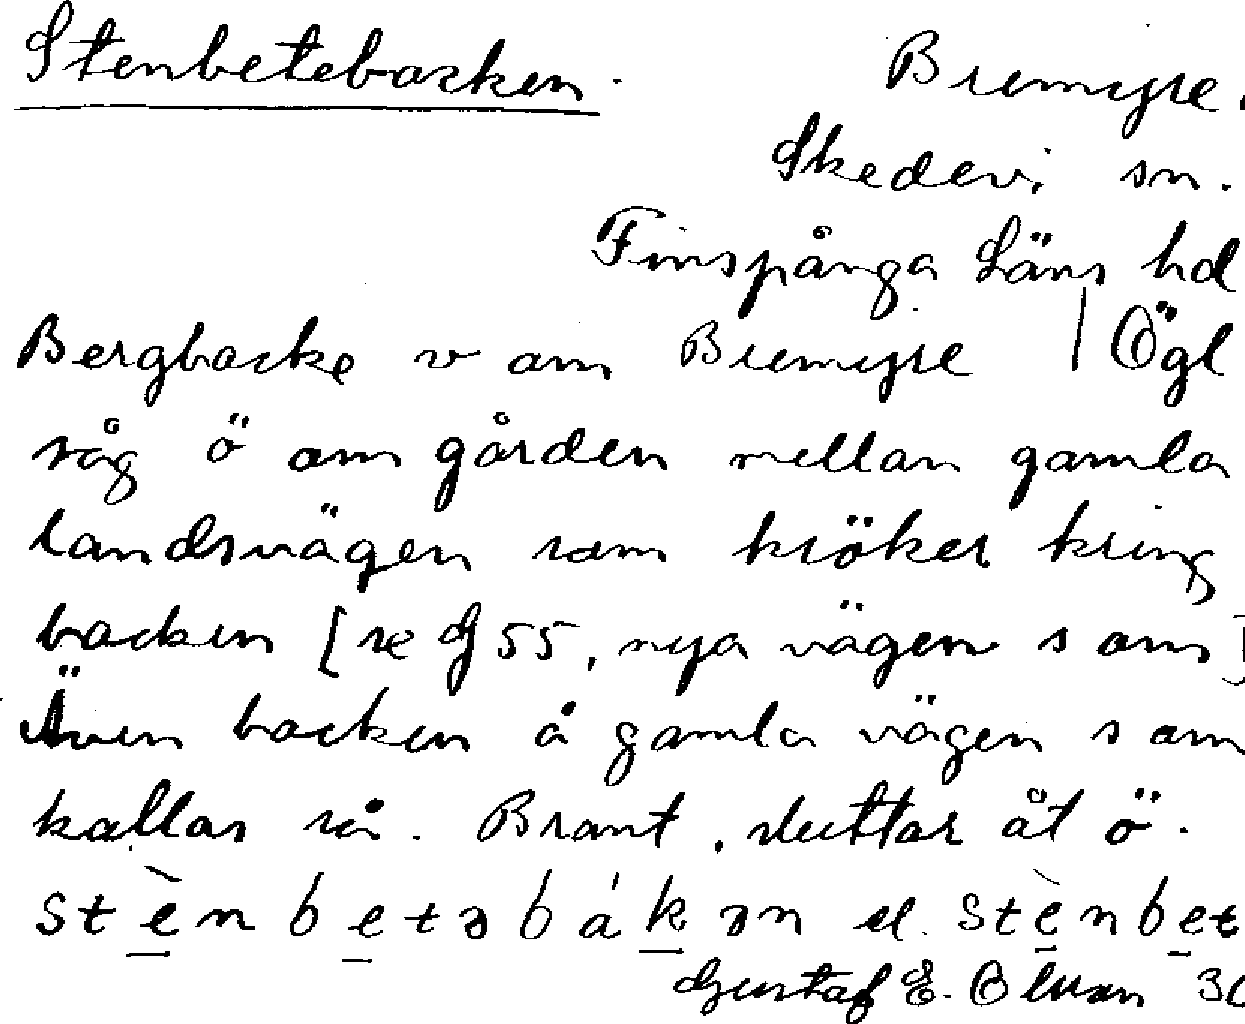 Stenbetebacken. Bremyre.
Skedevi sn.
Finspånga Läns hd
Bergbacke v om Bremyre | Ögl
såg ö om gården mellan gamla
landsvägen som kröker kring
backen [se G 55, nya vägen s om]
Även backen å gamla vägen som
kallas så. Brant, sluttar åt ö.
stènbetəbákən el. stènbet
Gustaf E. Olsson 30